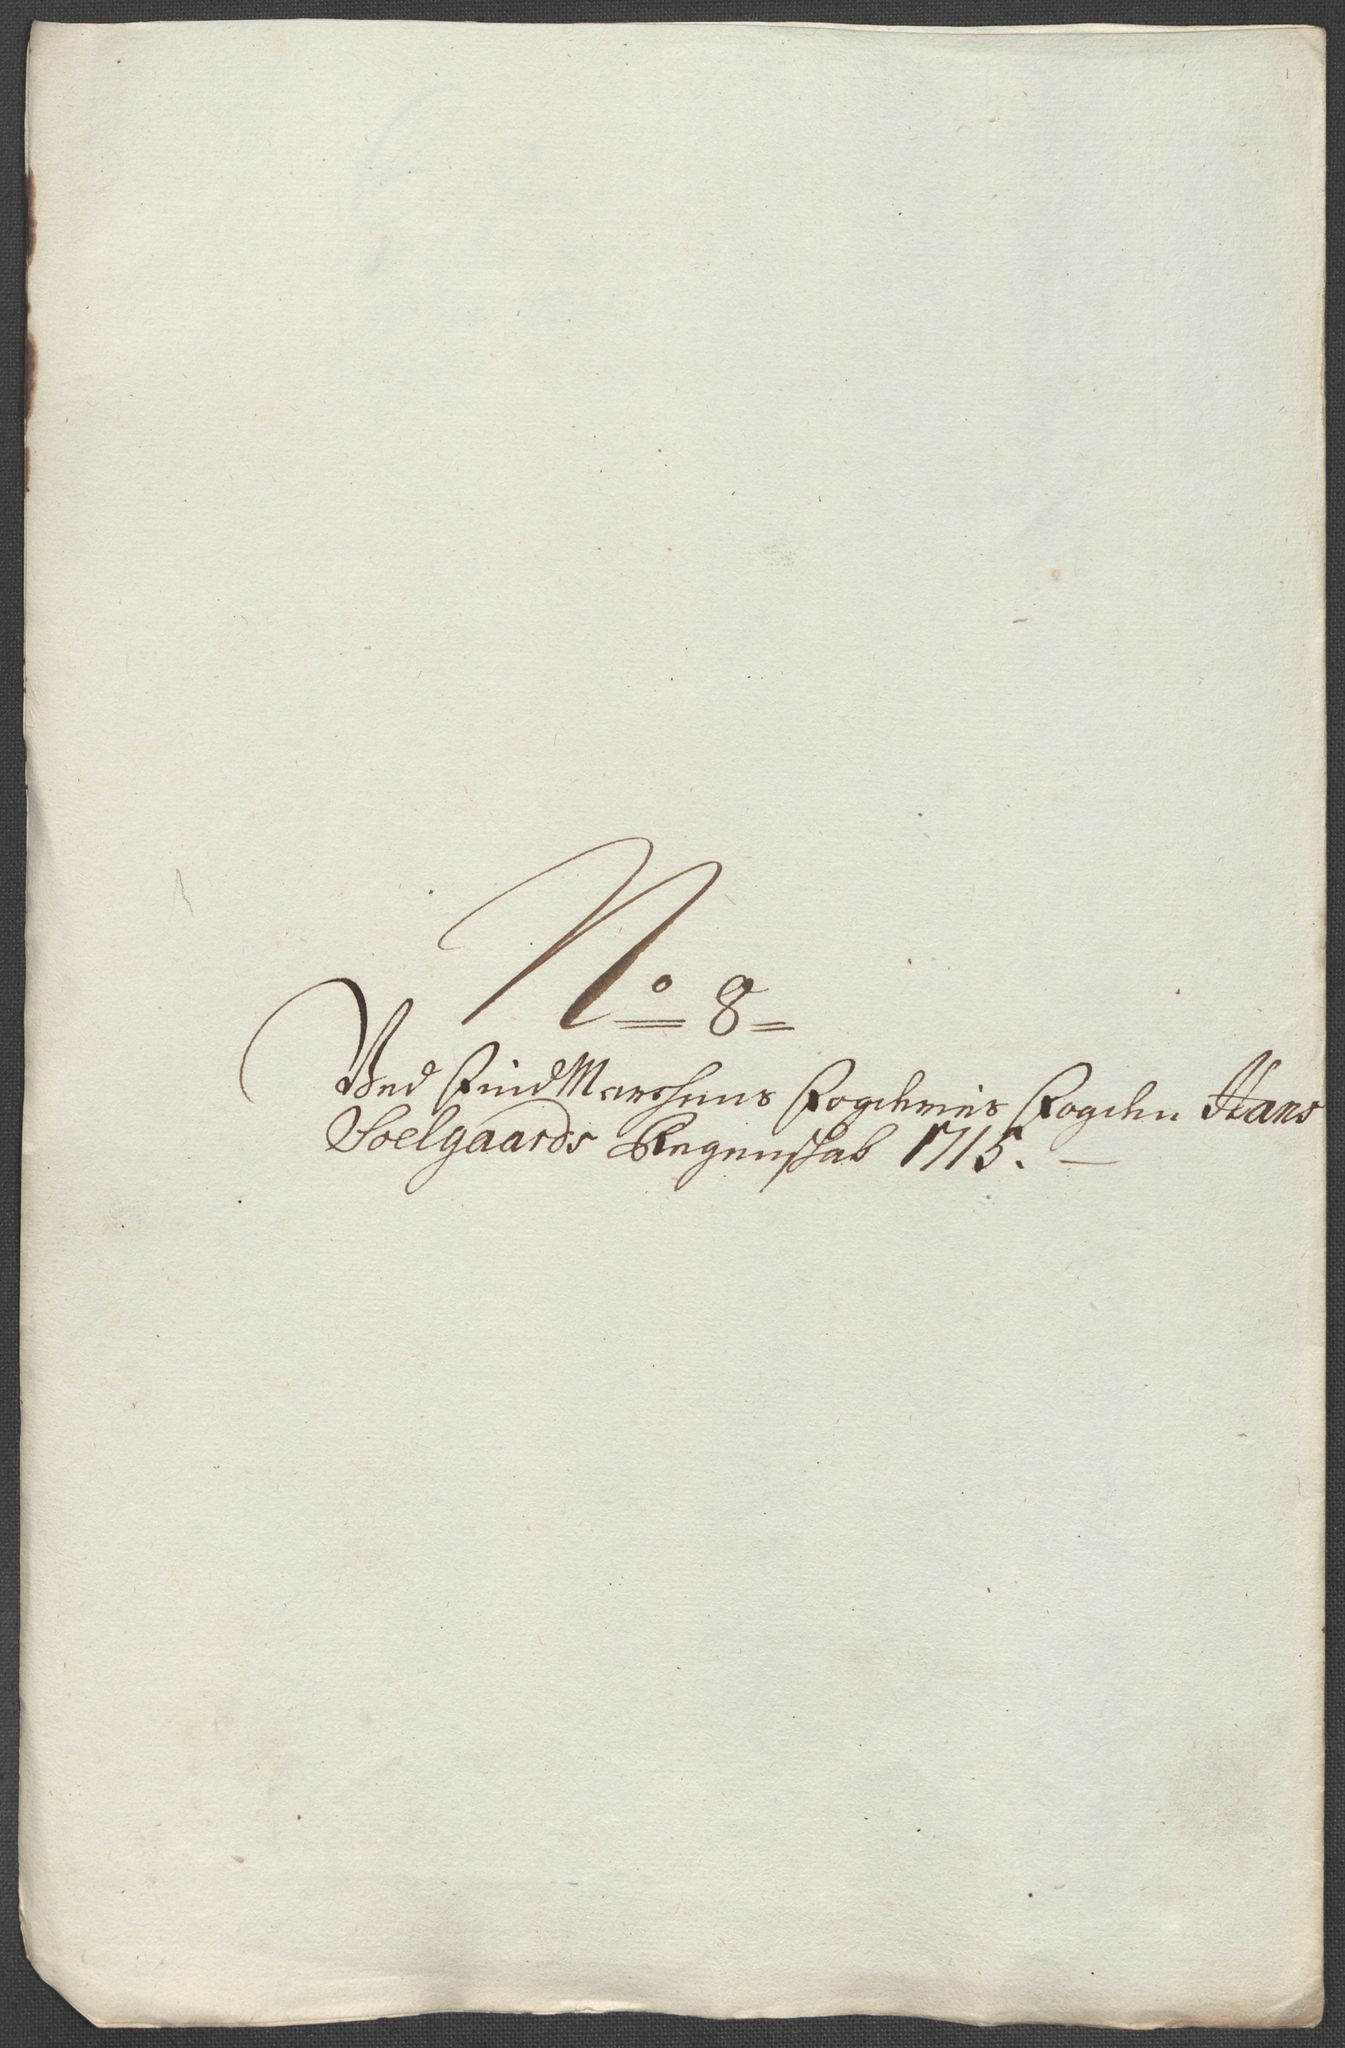 No 8
Ved FindMarchens Fogderies Fogden Hans
Soelgaards Regenskab 1715.